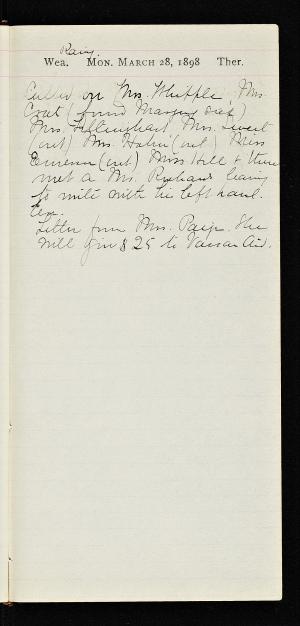 Rainy.
Wea. MON. MARCH 28, 1898 Ther.
Called on Mrs. Whipple, Mrs.
Coat (found Margery sick)
Mrs. Mrs. Sweet
(out) Mrs. (out) Miss
Emerson (out) Miss Hill & there
met a Mr. Richards learning
to write with his left hand.
Letter from Mrs. Paige. She
will give $25 to Vassar Aid.